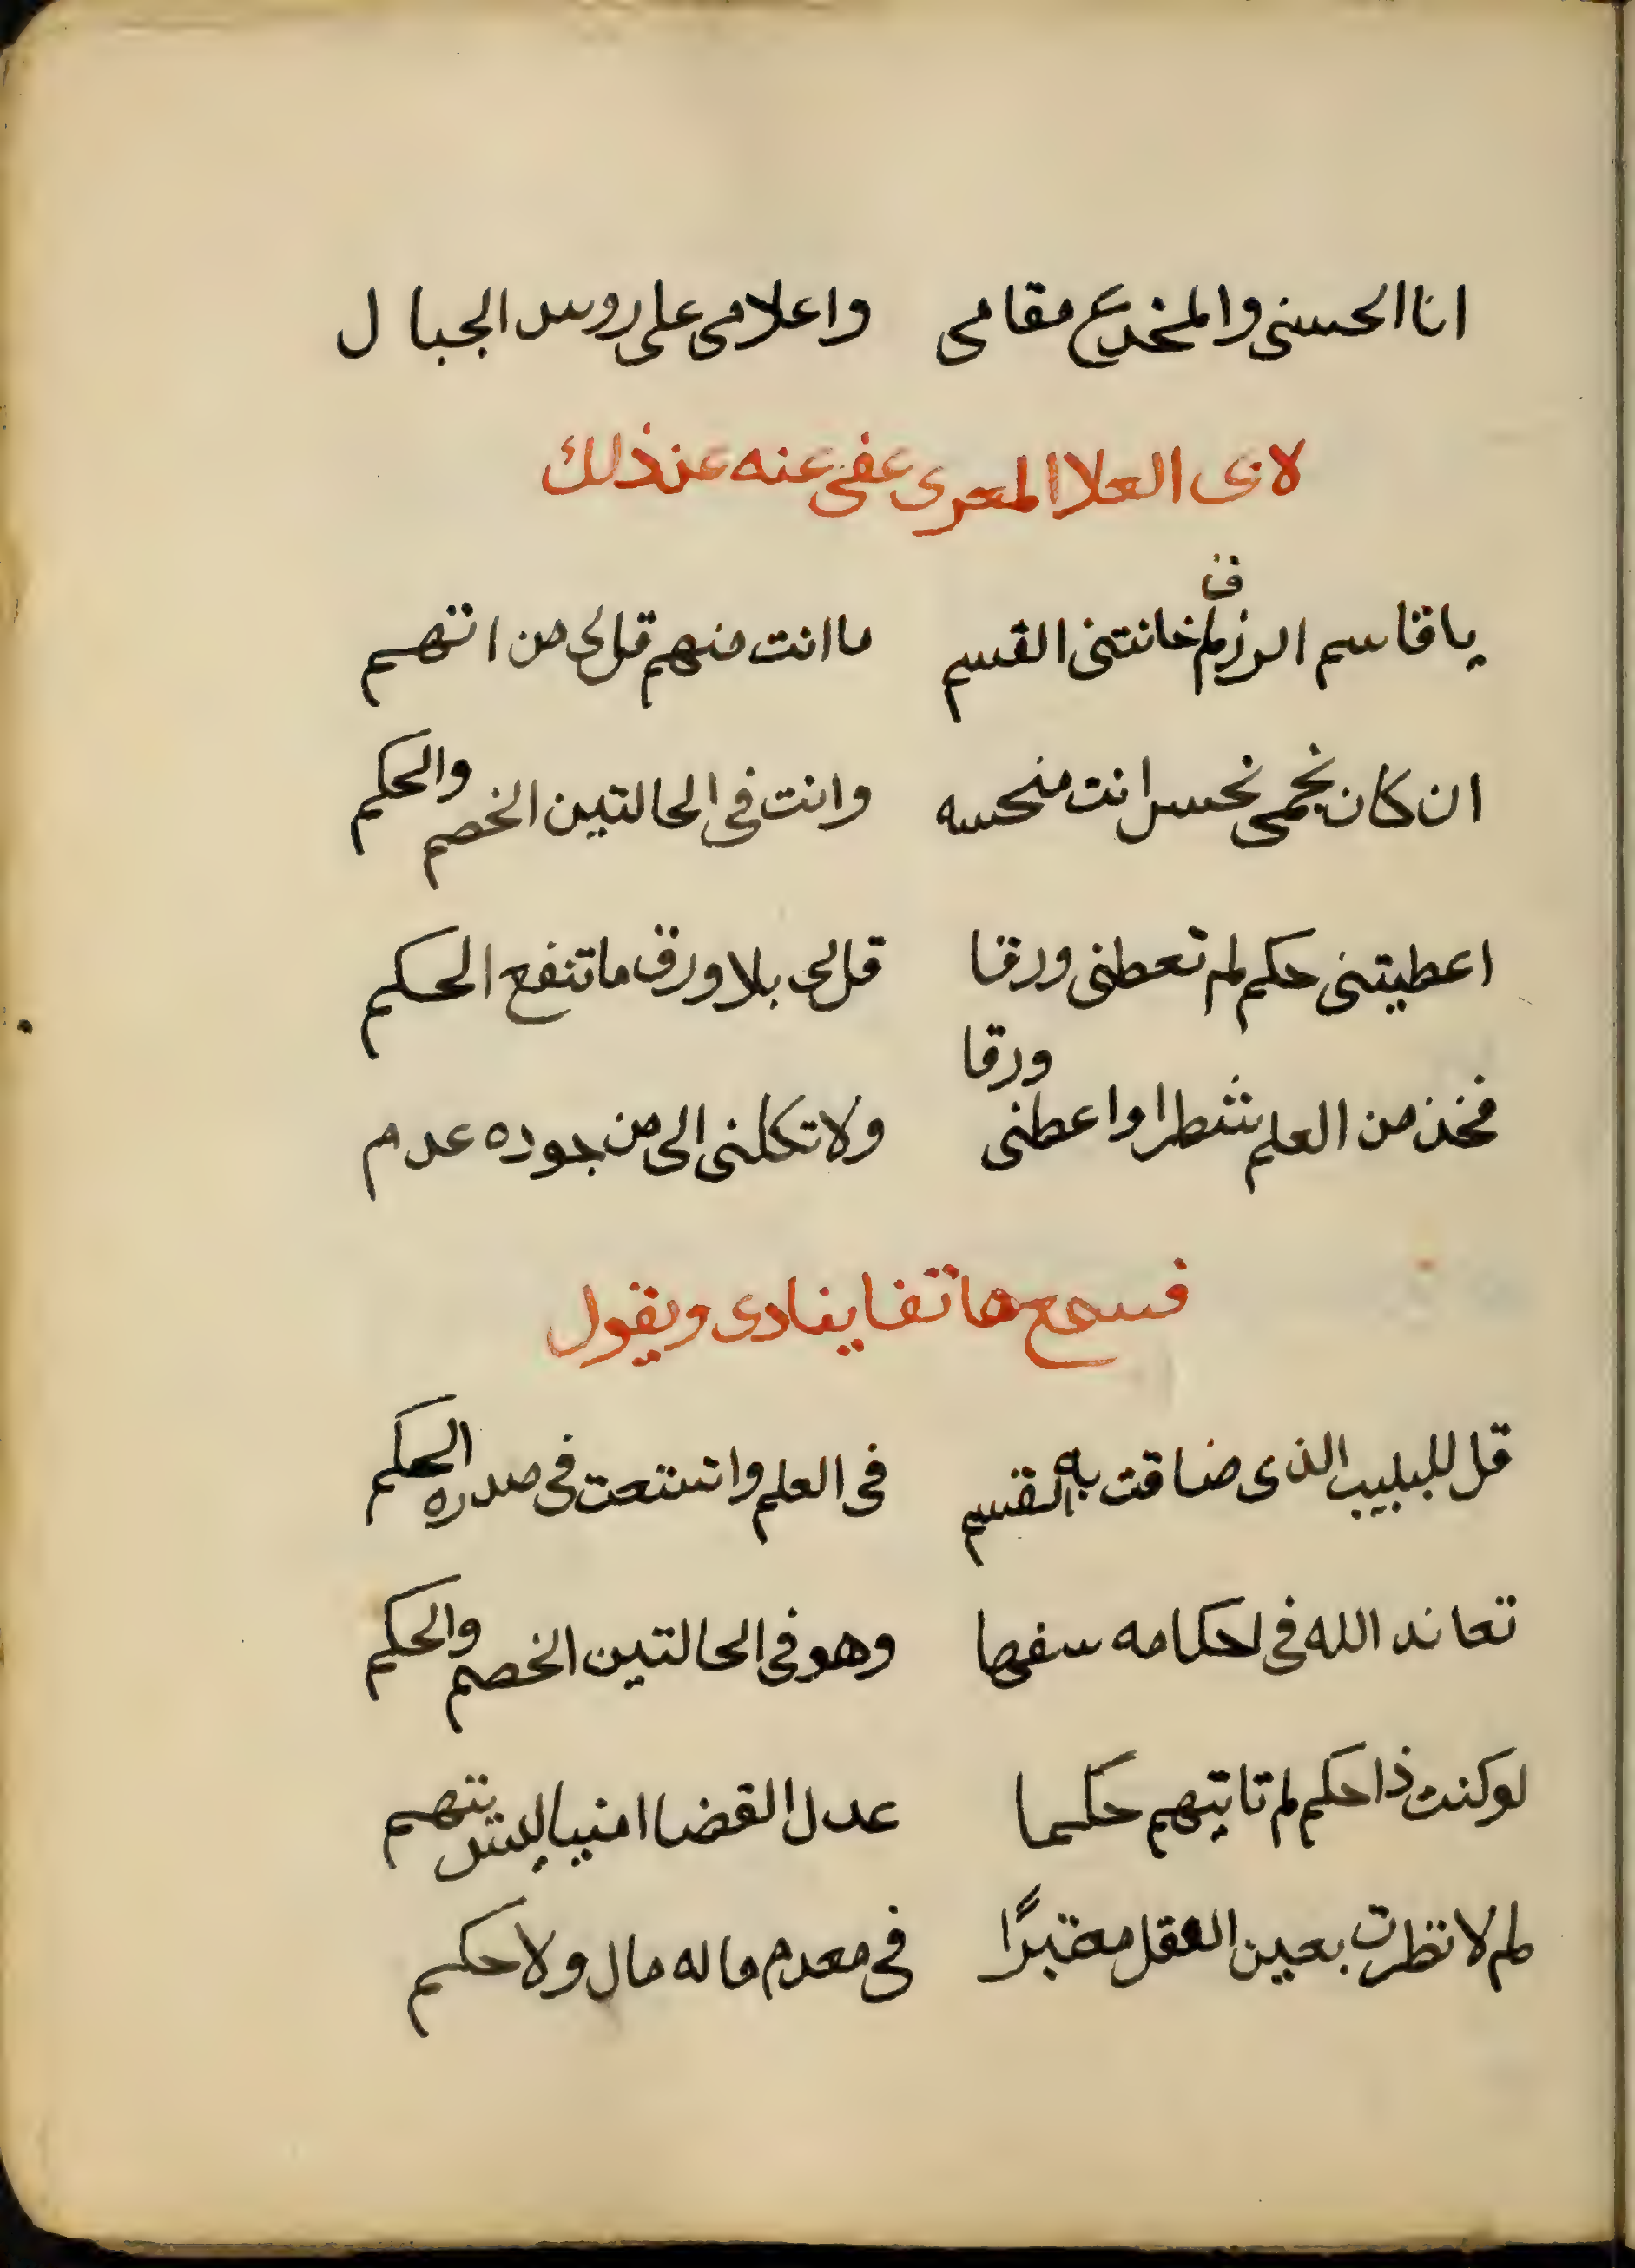 انا الحسنى والمخدع مقامى واعلامى على روس الجبال
لابى العلا المعرى عفى عنه عن ذلك
يا قاسم الرزق لم خانتنى القسم ما انت منهم قل لى من اتهم
ان كان نجمى نحس انت منحسه وانت فى الحالتين الخصم والحكم
اعطيتنى حكم لم تعطنى ورقا قل لى بلا ورق ما تنفع الحكم
فخذ من العلم شطرا واعطنى ورقا ولا تكلنى الى من جوده عدم
فسمع هاتفا ينادى ويقول
قل للبليب الذى ضاقت به القسم فى العلم واتسعت فى صدره الحكم
تعاند الله فى احكامه سفها وهو فى الحالتين الخصم والحكم
لو كنت ذا حكم لم تاتيهم حكما عدل القضا ليس يتهم
لم لا نظرت بعين العقل معتبرًا فى معدم ما له مال ولا حكم